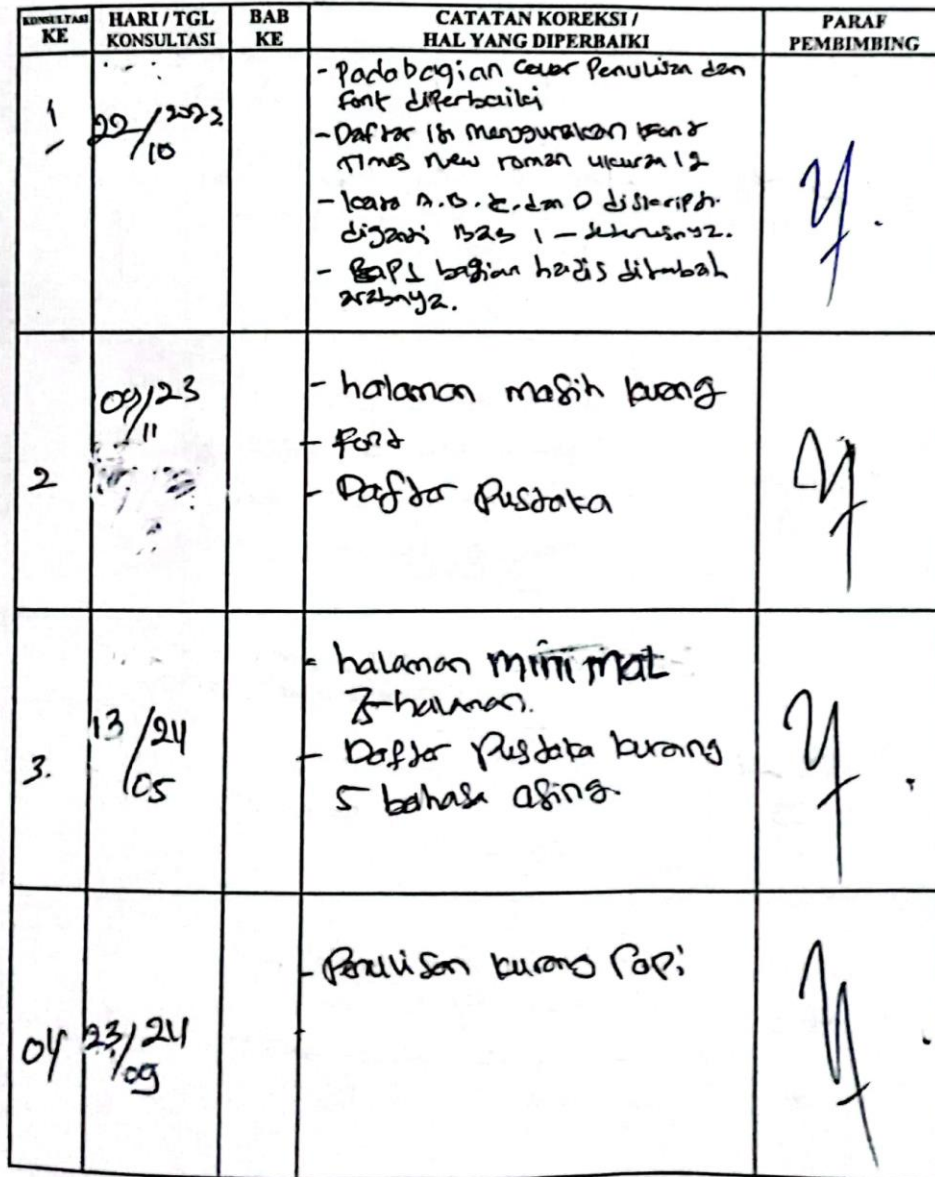 KONSULTASI KE
HARI / TGL KONSULTASI
BAB KE
CATATAN KOREKSI / HAL YANG DIPERBAIKI
PARAF PEMBIMBING
1
22/10
- Pada bagian Cover Penulisan dan
font diperbaiki
- Daftar isi menggunakan font
Times New roman ukuran 12
- A. B. C. dan D diskripsi
diganti Bab 1 – seterusnya.
- BAP 1 bagian hadis ditambah
arabnya.
2
09/23
11
- halaman masih kurang
- Font
- Daftar Pustaka
3.
13/24
05
- halaman minimal
75 halaman.
- Daftar Pustaka kurang
5 bahasa asing.
04
23/24
09
- Penulisan kurang rapi